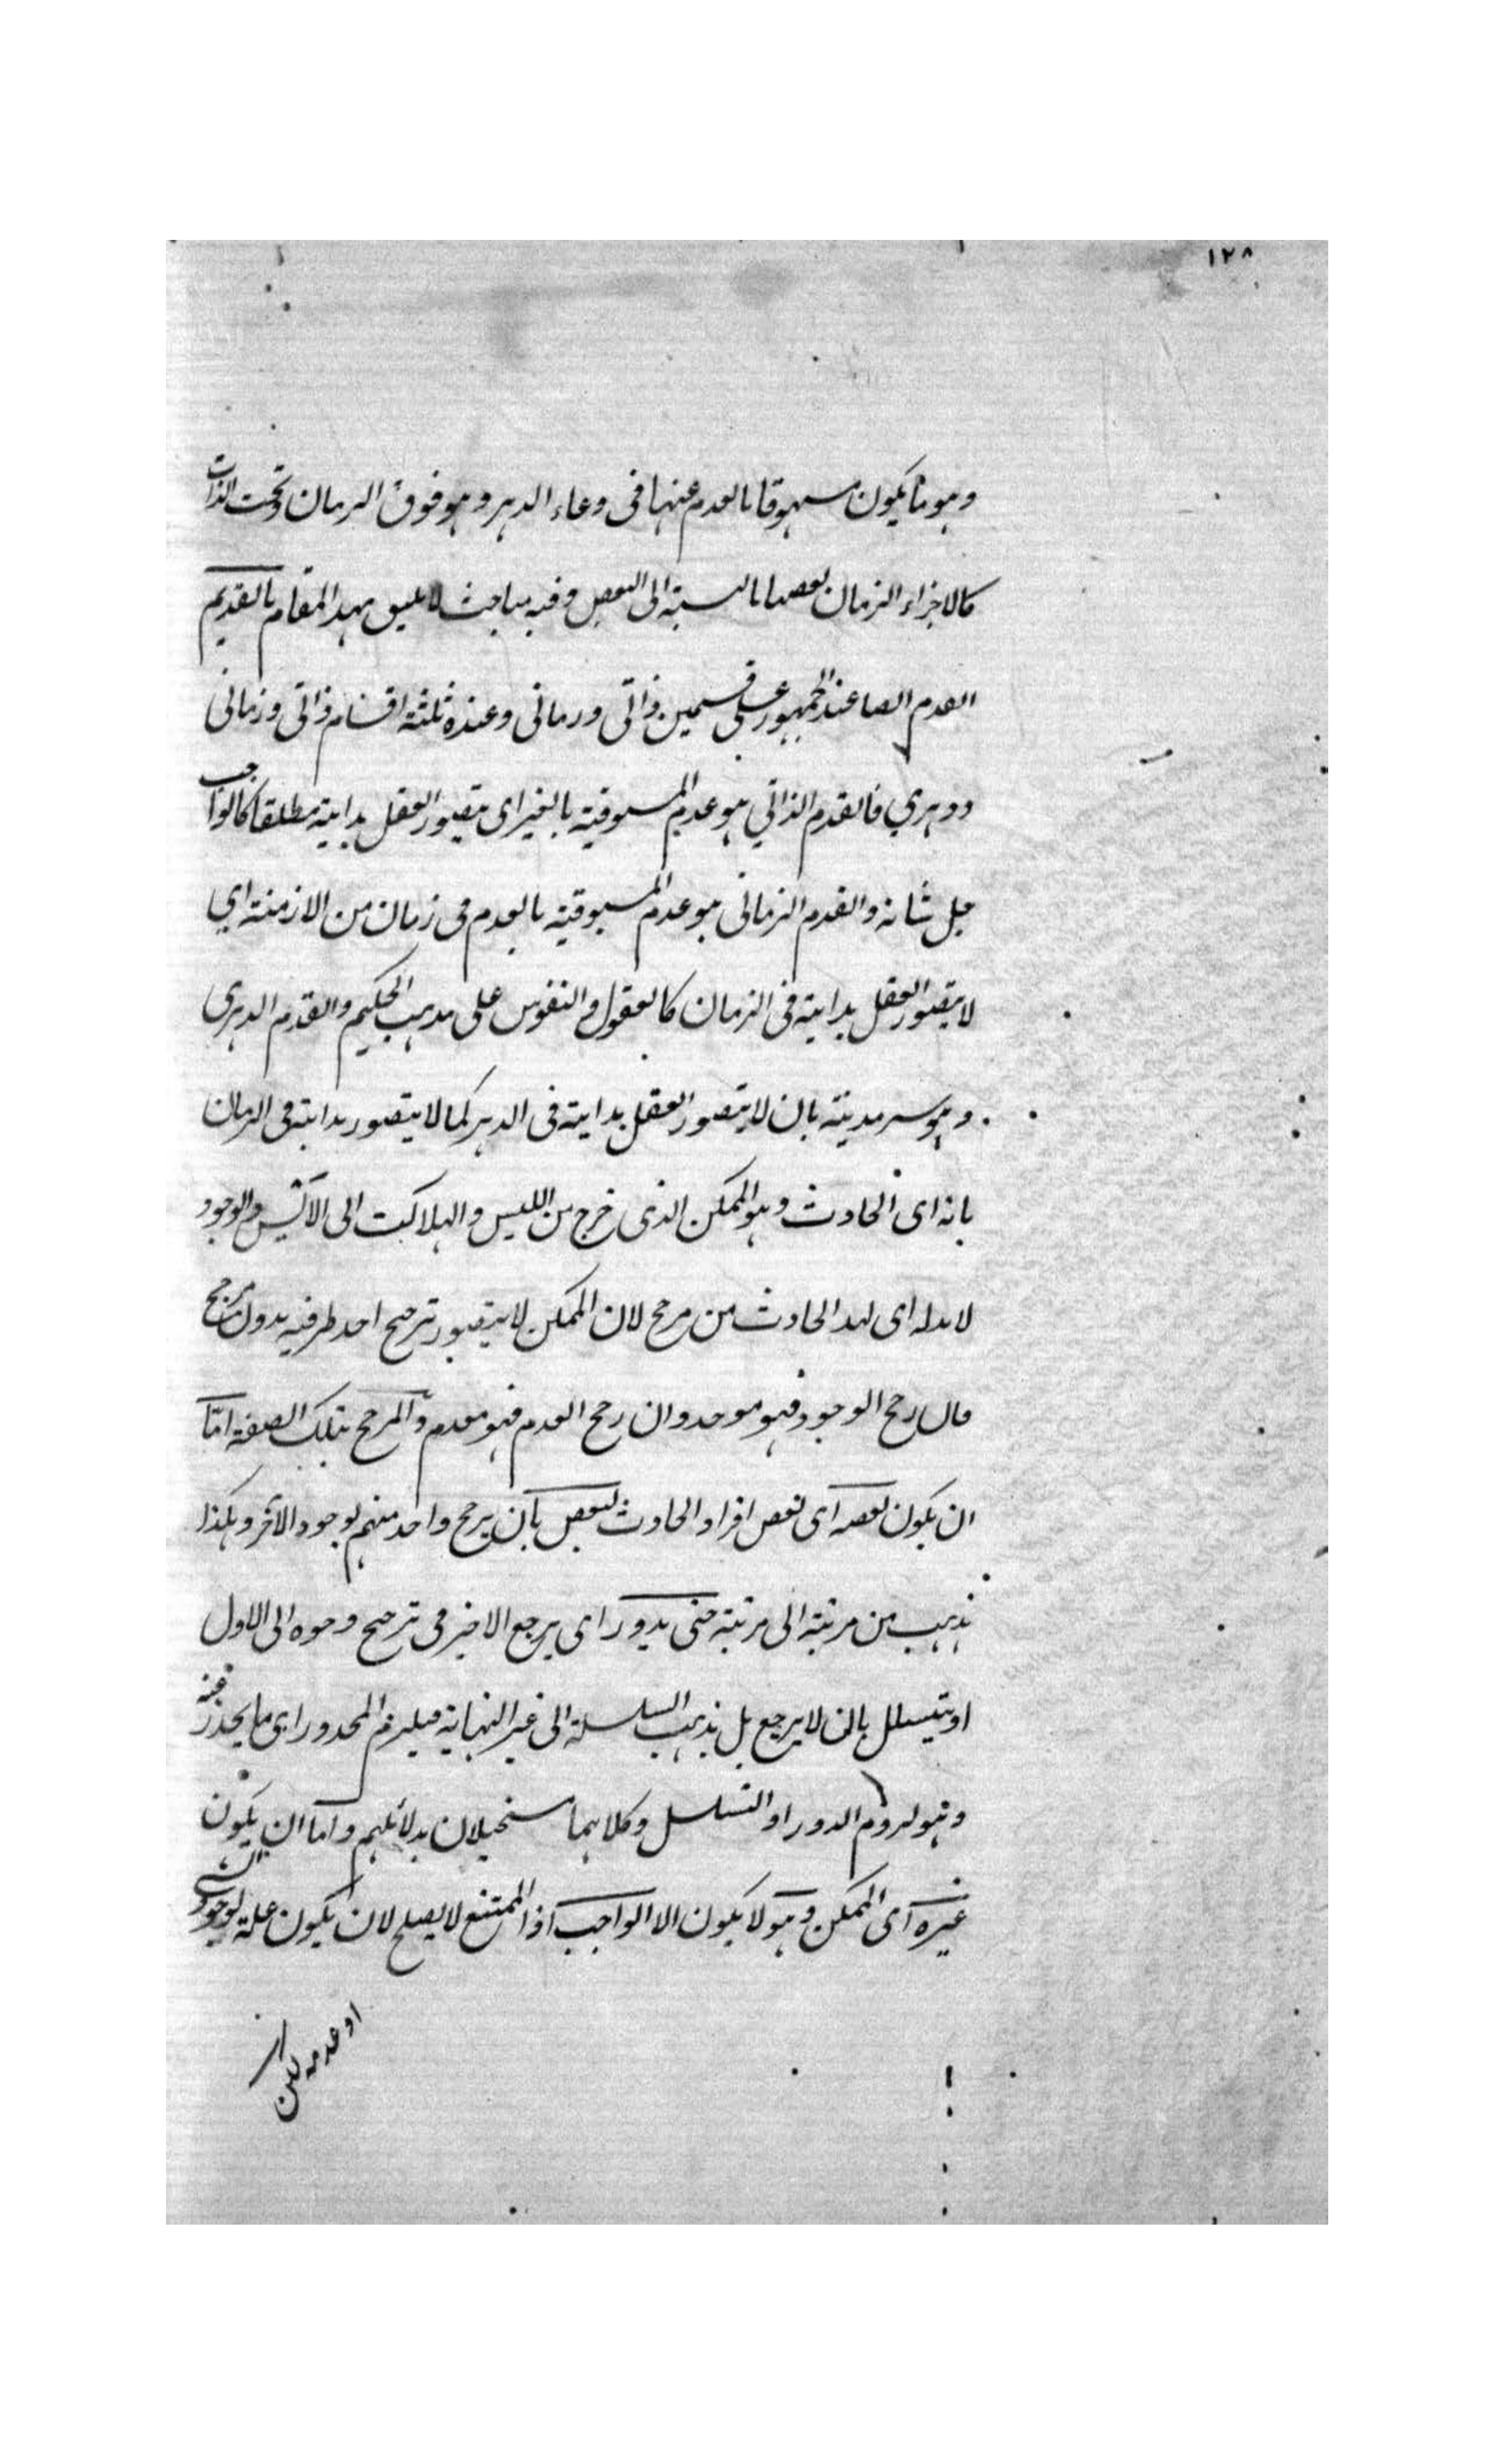 ١٢٨
وهو ما يكون مسبوقا بالعدم عنها فى وعاء الدهر وهو فوق الزمان وتحت الذات
كالاجزاء الزمان بعضها بالنسبة الى البعض وفيه مباحث لا يليق بهذا المقام بالقديم
القدم ايضا عند الجمهور على قسمين ذاتى وزمانى وعنده ثلثة اقسام ذاتى وزمانى
ودهري فالقدم الذاتي هو عدم المسبوقية بالغير اى يتصور العقل بداية مطلقا كالواجب
جل شانه والقدم الزمانى هو عدم المسبوقية بالعدم فى زمان من الازمنة اي
لا يتصور العقل بدايته فى الزمان كالعقول والنفوس على مذهب الحكيم والقدم الدهرى
وهو سرمديته بان لا يتصور العقل بدايته فى الدهر كما لا يتصور بدايته فى الزمان
بانه اى الحادث وهو الممكن الذى خرج من الليس والهلاكت الى الأيس والوجود
لا بد له اى لهذا الحادث من مرجح لان الممكن لا يتصور ترجيح احد طرفيه بدون مرجح
فان رجح الوجود فهو موجد وان رجح العدم فهو معدم والمرجح بتلك الصفة امّا
ان يكون بعضه اى بعض افراد الحادث لبعض بان يرجح واحد منهم لوجود الآخر وهكذا
نذهب من مرتبة الى مرتبة حتى يدور اى يرجع الاخير فى ترجيح وجوده الى الاول
او يتسلل بان لا يرجع بل نذهب السلسلة الى غير النهاية فيلزم المحذور اى ما يحذر عنه
وهو لزوم الدور او التسلسل وكلاهما مستحيلان بدلائلهم وامّا ان يكون
غيره اى الممكن وهو لا يكون الا الواجب اذ الممتنع لا يصلح لان يكون علة لوجود الشى
او عدمه لكن